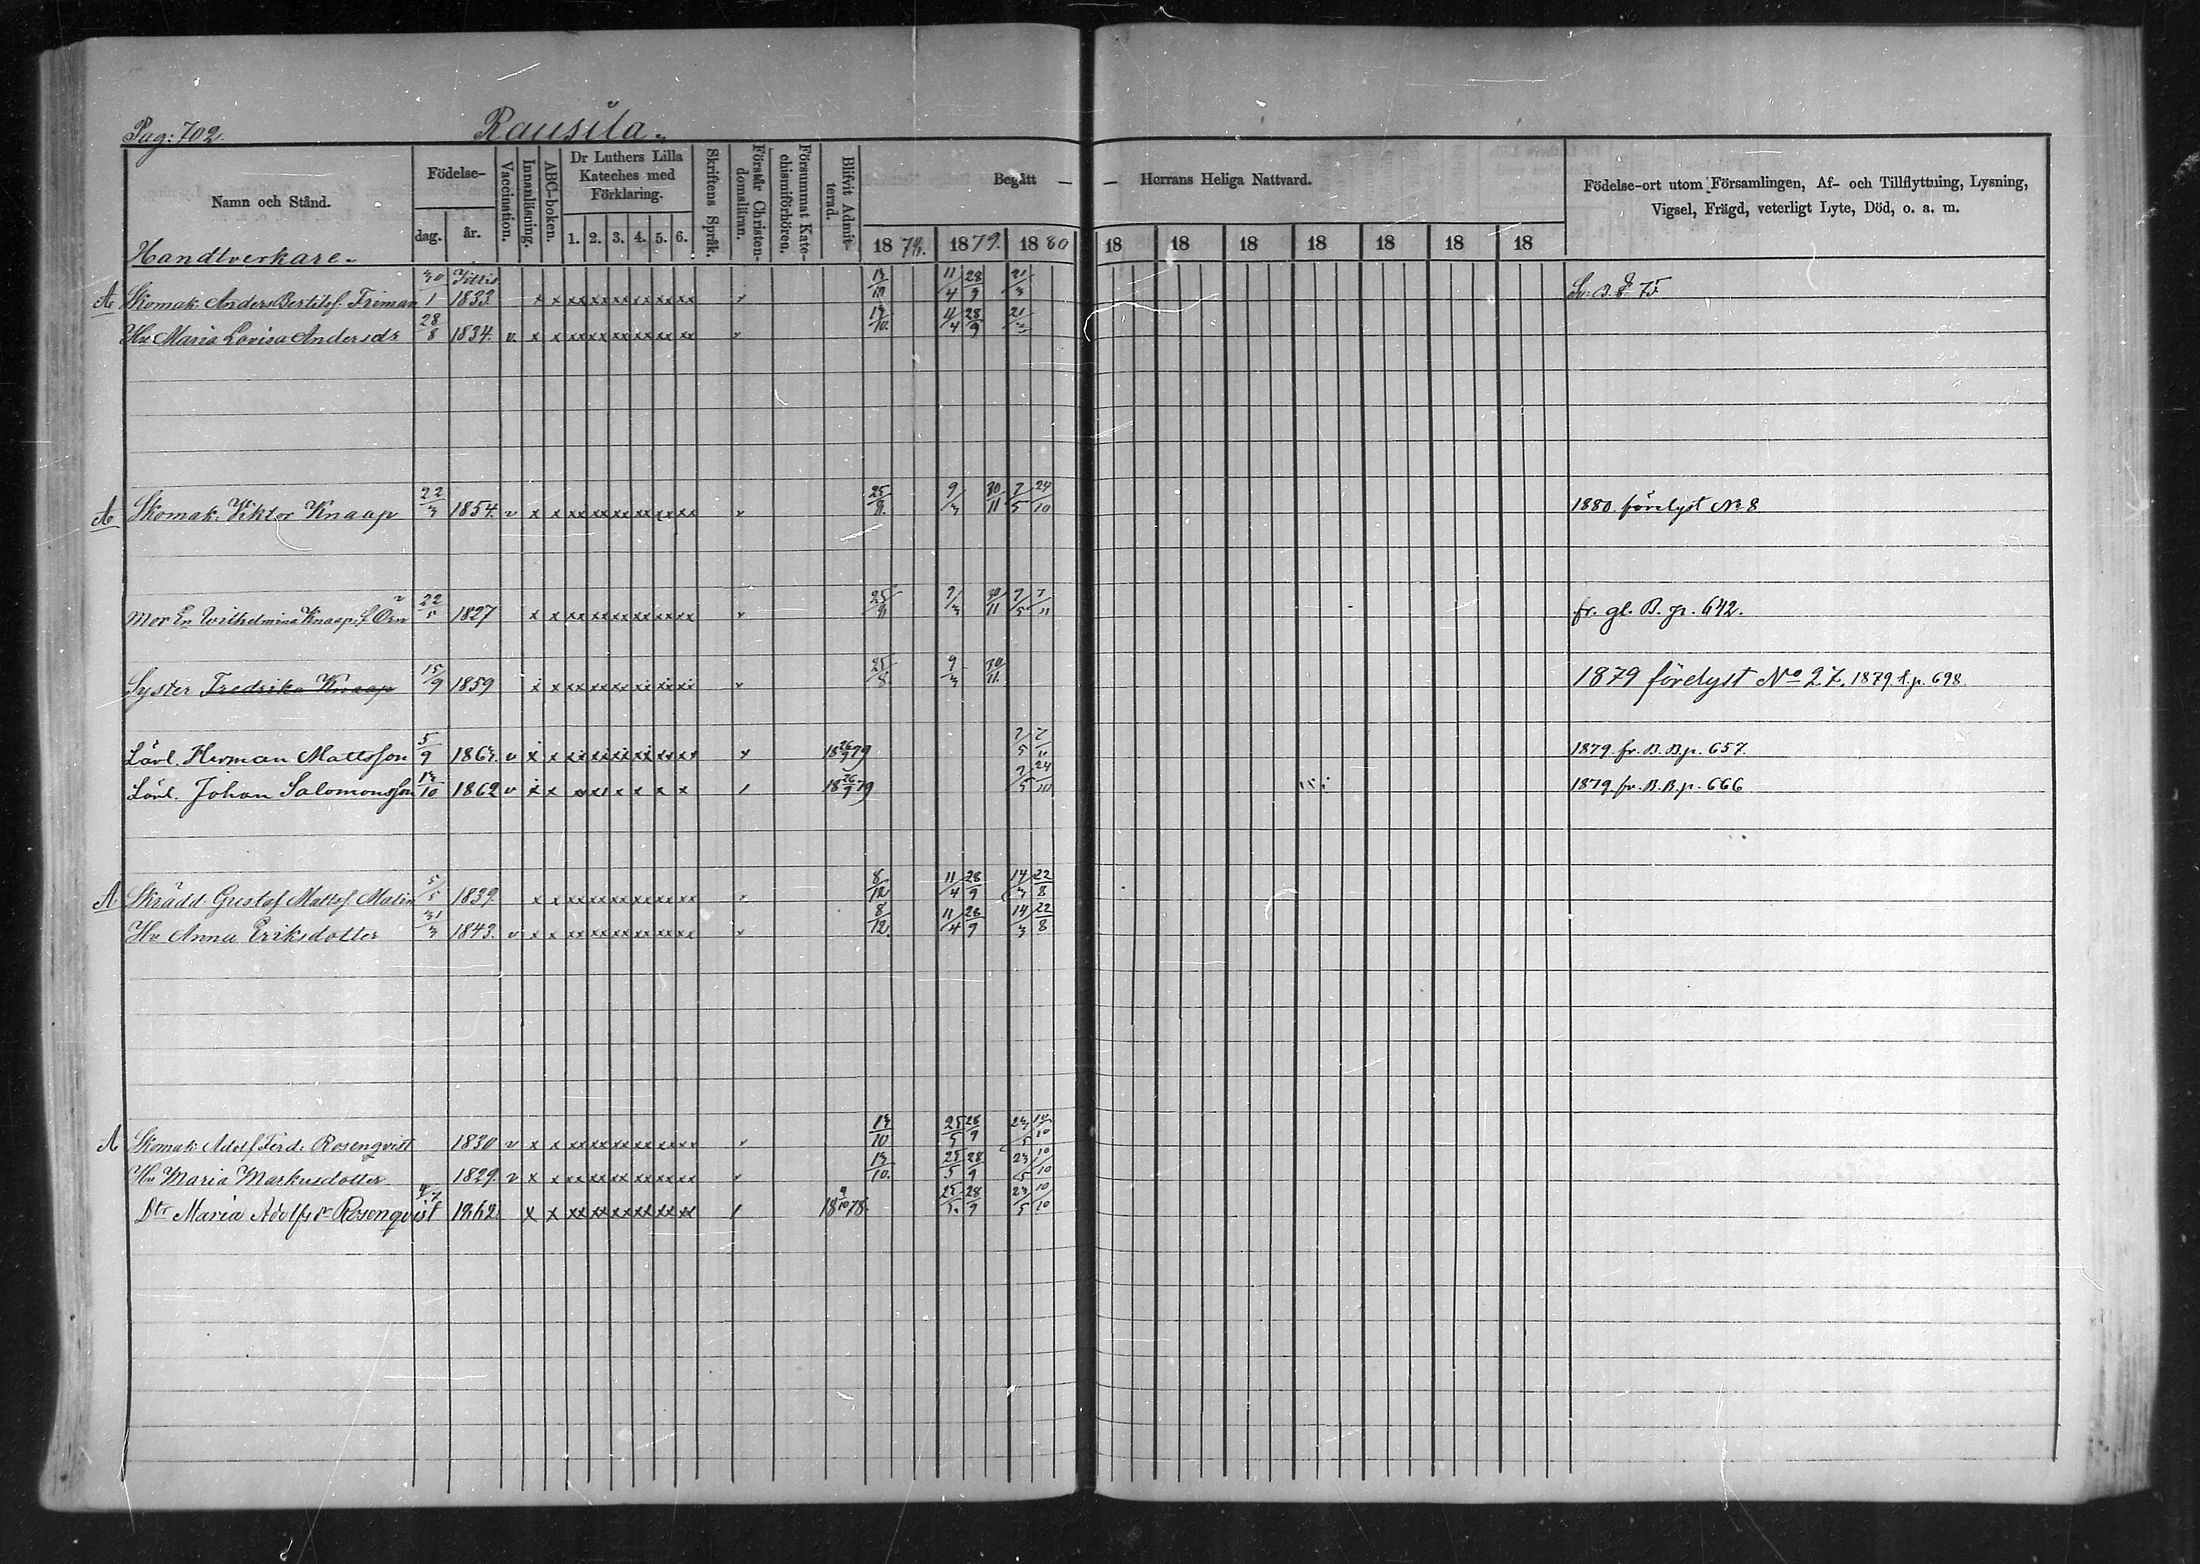 Pag: 702. Rausila.
Namn och Stånd. Födelse- dag. år. Vaccination. Innanläsning. ABC-boken. Dr Luthers Lilla Kateches med Förklaring. 1. 2. 3. 4. 5. 6. Skriftens Språk. Förstår Christendomsläran. Försummat Katechismiförhören. Blifvit Admitterad. Begått Herrans Heliga Nattvard. Födelse-ort utom Församlingen, Af- och Tillflyttning, Lysning, Vigsel, Frägd, veterligt Lyte, Död, o. a. m.
1878. 1879. 1880 18 18 18 18 18 18 18
Handtverkare.
A Skomak. Anders Bertilsf. Friman 30/1 1833 x x xx xx xx xx xx xx 11/4 28/9 21/3
Hu Maria Lovisa Andersdr 28/8 1834. v. x x xx xx xx xx xx xx v 11/4 28/9 21/3
A Skomak. Viktor Knaap 22/3 1854. v x x xx xx xx xx xx xx v 9/3 30/11 7/5 24/10 1880 förelyst No 8
Mor En Wilhelmina Knaap, f. Örn 22/5 1827 x x xx xx xx xx xx xx v 9/3 30/11 7/5 7/11 fr. gl. B. p. 642.
Syster Fredrika Knaap 15/9 1859 x x xx xx xx xx xx xx v 25/8 9/3 30/11. 1879 förelyst No 27. 1879 t. p. 698.
Lärl. Herman Mattsson 5/9 1863 v x x xx xx xx xx xx xx x 18 26/9 79 7/5 7/11 1879 fr. B. B. p. 657.
Lärl. Johan Salomonsson 13/10 1862 v x x xx xx x x x x 18 26/9 79 7/5 24/10 1879 fr. B. B. p. 666
A Skrädd. Gustaf Mattsf. Malin 5/5 1839. x x xx xx xx xx xx xx v 8/12 11/4 28/9 14/3 22/8
Hu Anna Eriksdotter 31/3 1843. v x x xx xx xx xx xx xx v 8/12. 11/4 28/9 14/3 22/8
A Skomak. Adolf Ferd. Rosenqvist 1830 v x x xx xx xx xx xx xx v 13/10 25/5 28/9 23/5 10/10
Hu Maria Markusdotter 1829. v x x xx xx xx xx xx xx v 13/10. 25/5 28/9 23/5 10/10
Dtr Maria Adolfsdr Rosenqvist 1862. x x xx xx xx xx xx xx 25/5. 28/9 23/5 10/10